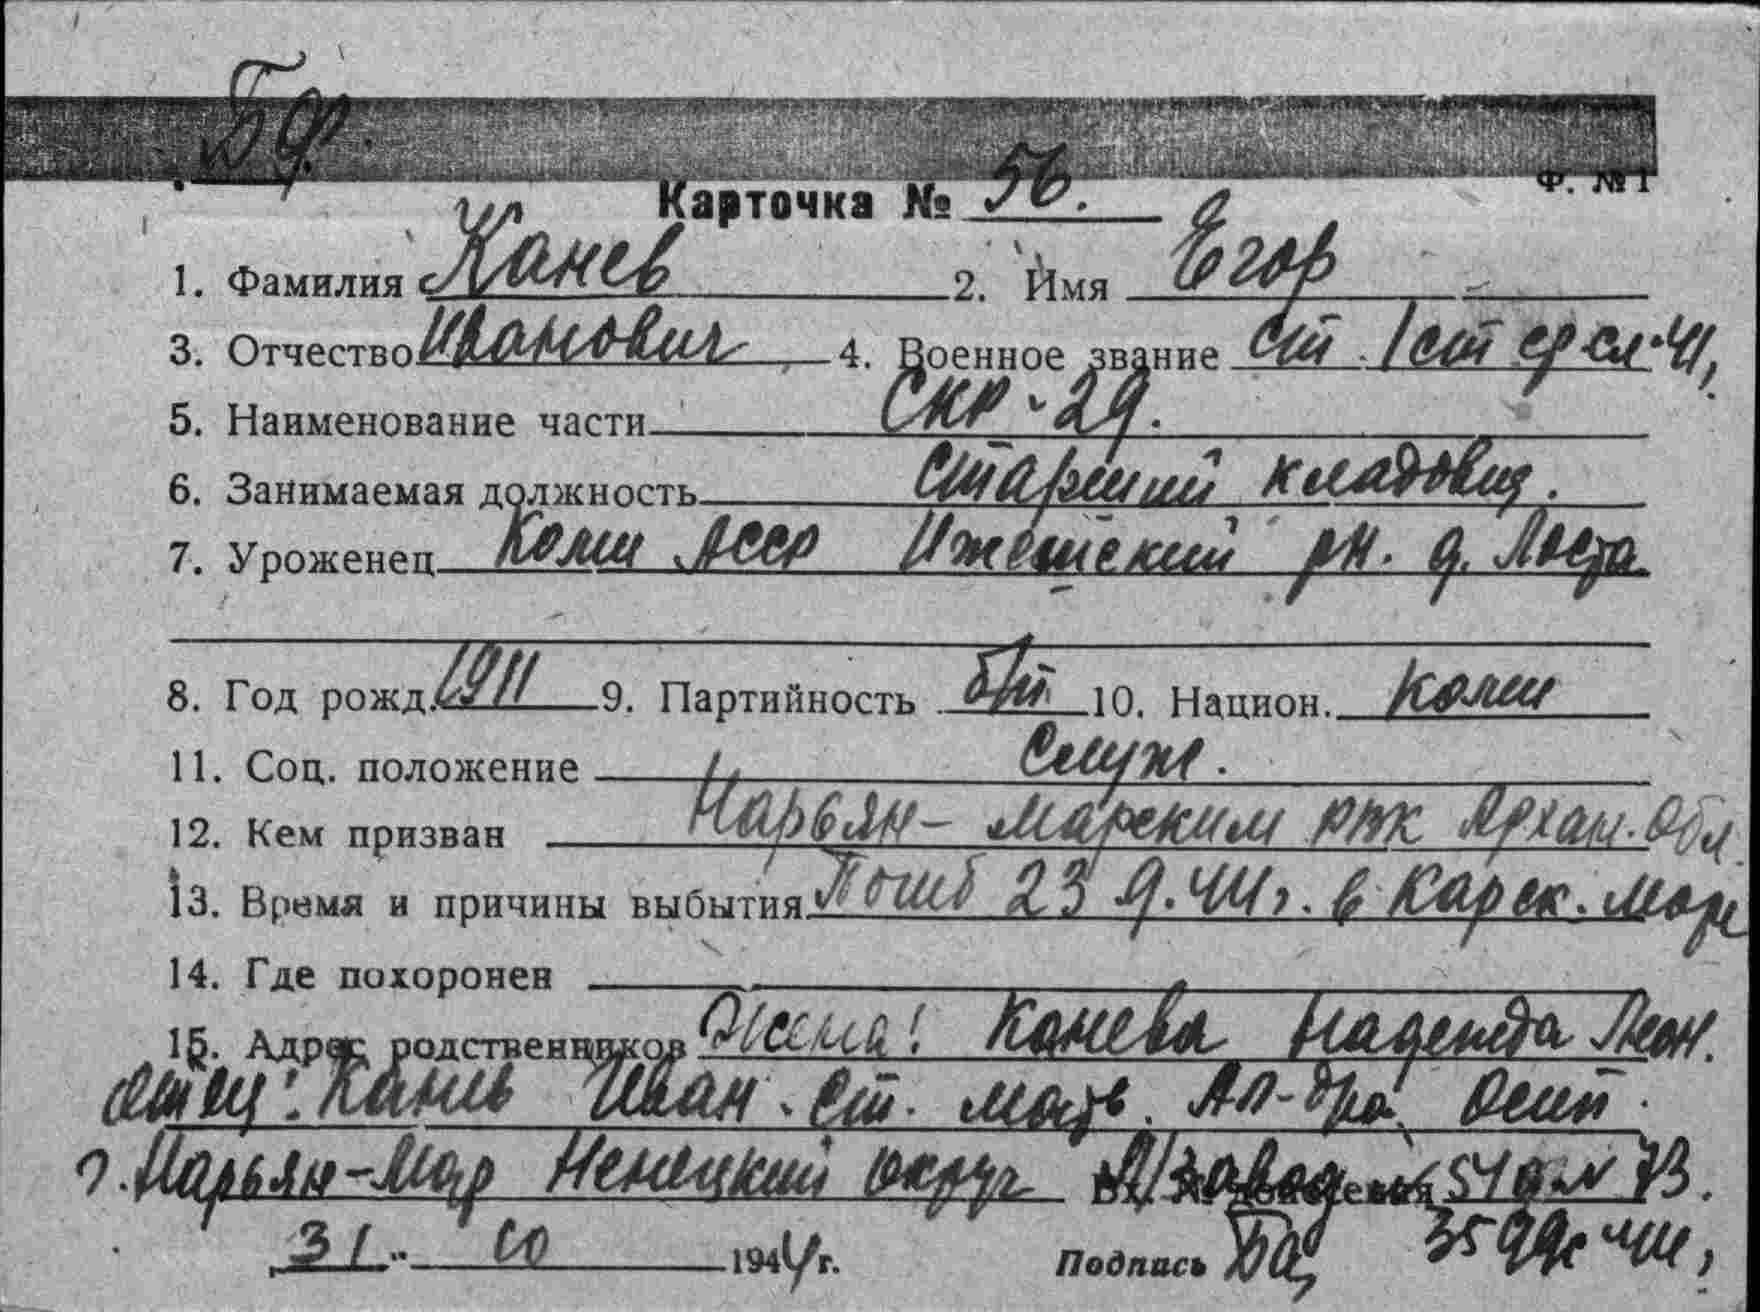 БФ.
Ф. № 1
Карточка № 56.
1. Фамилия Канев 2. Имя Егор
3. Отчество Иванович 4. Военное звание ст. 1 ст ср сл. 41,
5. Наименование части СКР-29.
6. Занимаемая должность Старший кладовщ.
7. Уроженец Коми АССР Ижемский рн. д. Ласта
8. Год рожд. 1911 9. Партийность б/п 10. Национ. Коми
11. Соц. положение Служ.
12. Кем призван Нарьян-Марским РВК Архан. Обл
13. Время и причины выбытия Погиб 23.9.44г. в Карск. Море
14. Где похоронен
15. Адрес родственников Жена: Канева Надежда Леон.
отец: Канев Иван. Ст. мать. Ал-дра Осип.
г. Нарьян-Мар Ненецкий округ Л/завод 54 д. N 73.
31 " 10 1944 г. Подпись 3599с